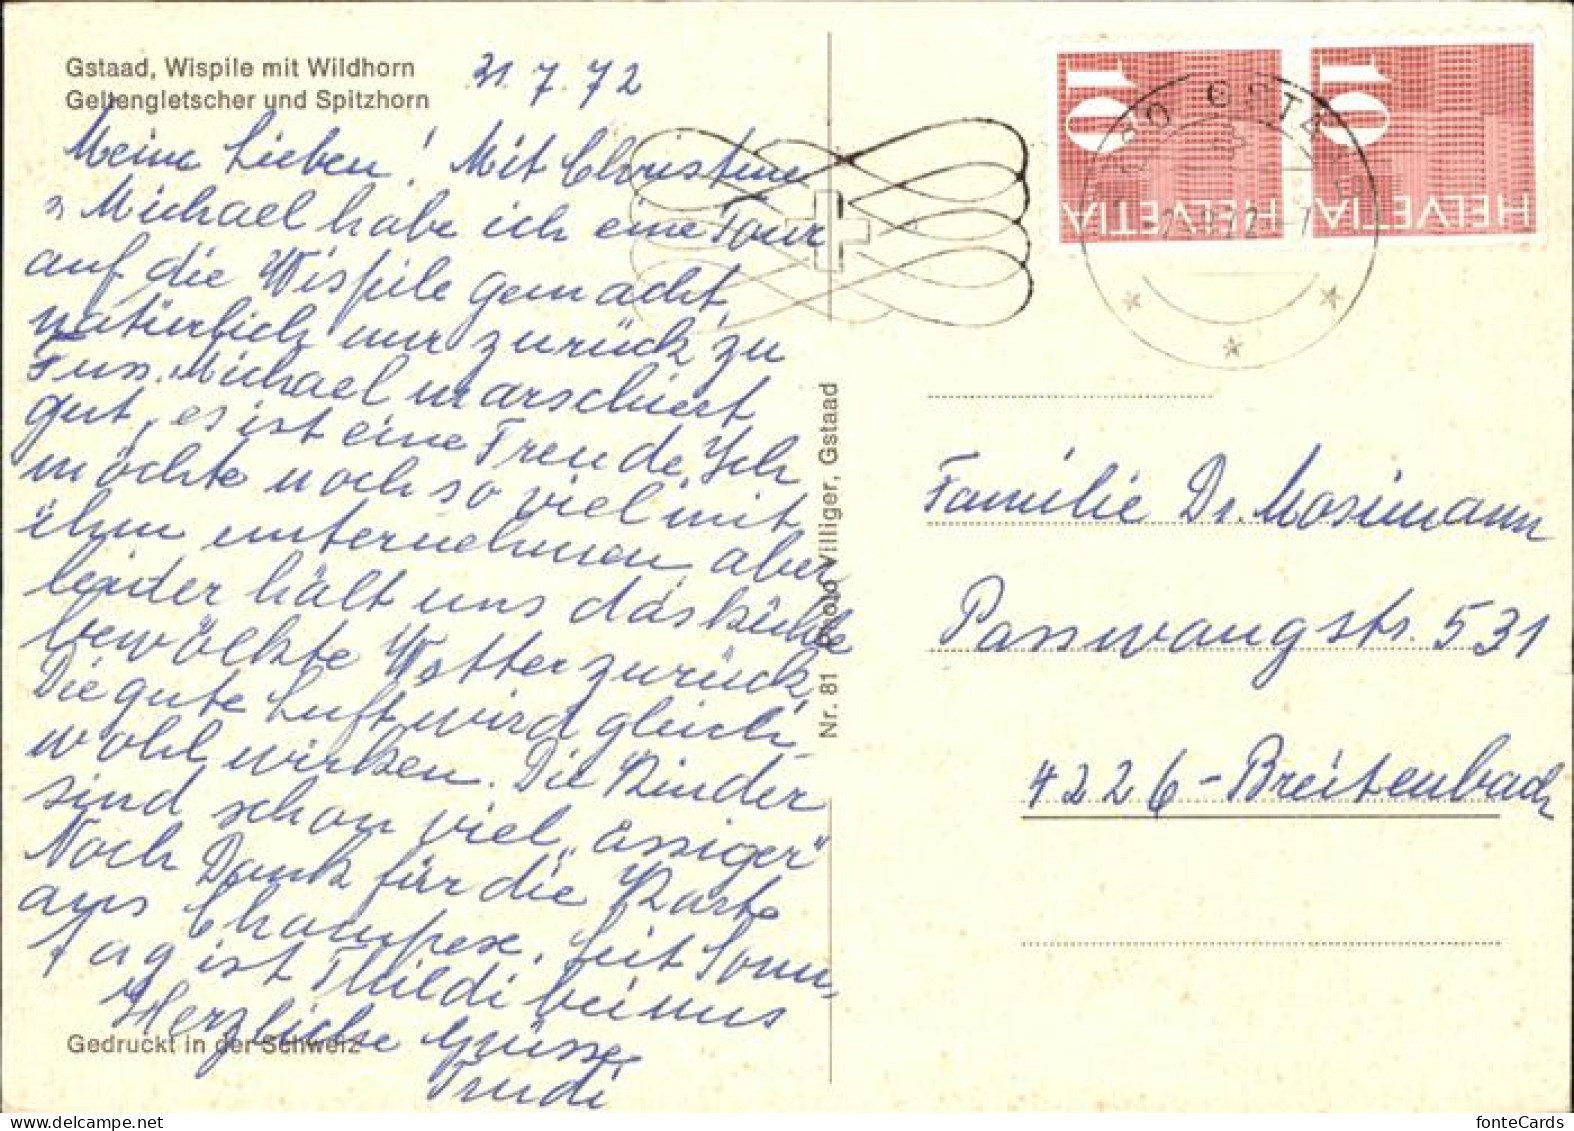 Gstaad, Wispile mit Wildhorn
Geltengletscher und Spitzhorn
31.7.72
Meine Lieben! Mit Christine
u Michael habe ich eine Tour
auf die Wispile gemacht,
natürlich nur zurück zu
Fuss. Michael marschiert
gut, es ist eine Freude. Ich
möchte noch so viel mit
ihm unternehmen aber
leider hält uns das kühle
bewölkte Wetter zurück,
Die gute Luft wird gleich-
wohl wirken. Die Kinder
sind schon viel „ässiger"
Noch Dank für die Karte
aus Champex. Seit Sonn-
tag ist Thildi bei uns
Herzliche Grüsse
Trudi
Gedruckt in der Schweiz
Nr. 81 Photo Villiger, Gstaad
10 HELVETIA
10 HELVETIA
GSTAAD
Familie Dr. Mosimann
Passwangstr. 531
4226-Breitenbach
fonteCards